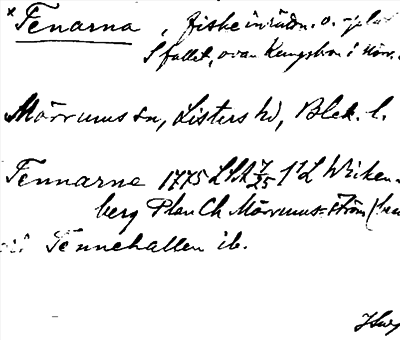 *Fenarna, fiskeinrättn. o. -plats
i fallet, ovan Kungsbron i Mörr.
Mörrums sn, Listers hd, Blek. l.
Tennarne 1775 LSA 7/25 L Wicken-
berg Plan Ch Mörrums-ström
Tennehallen ib.